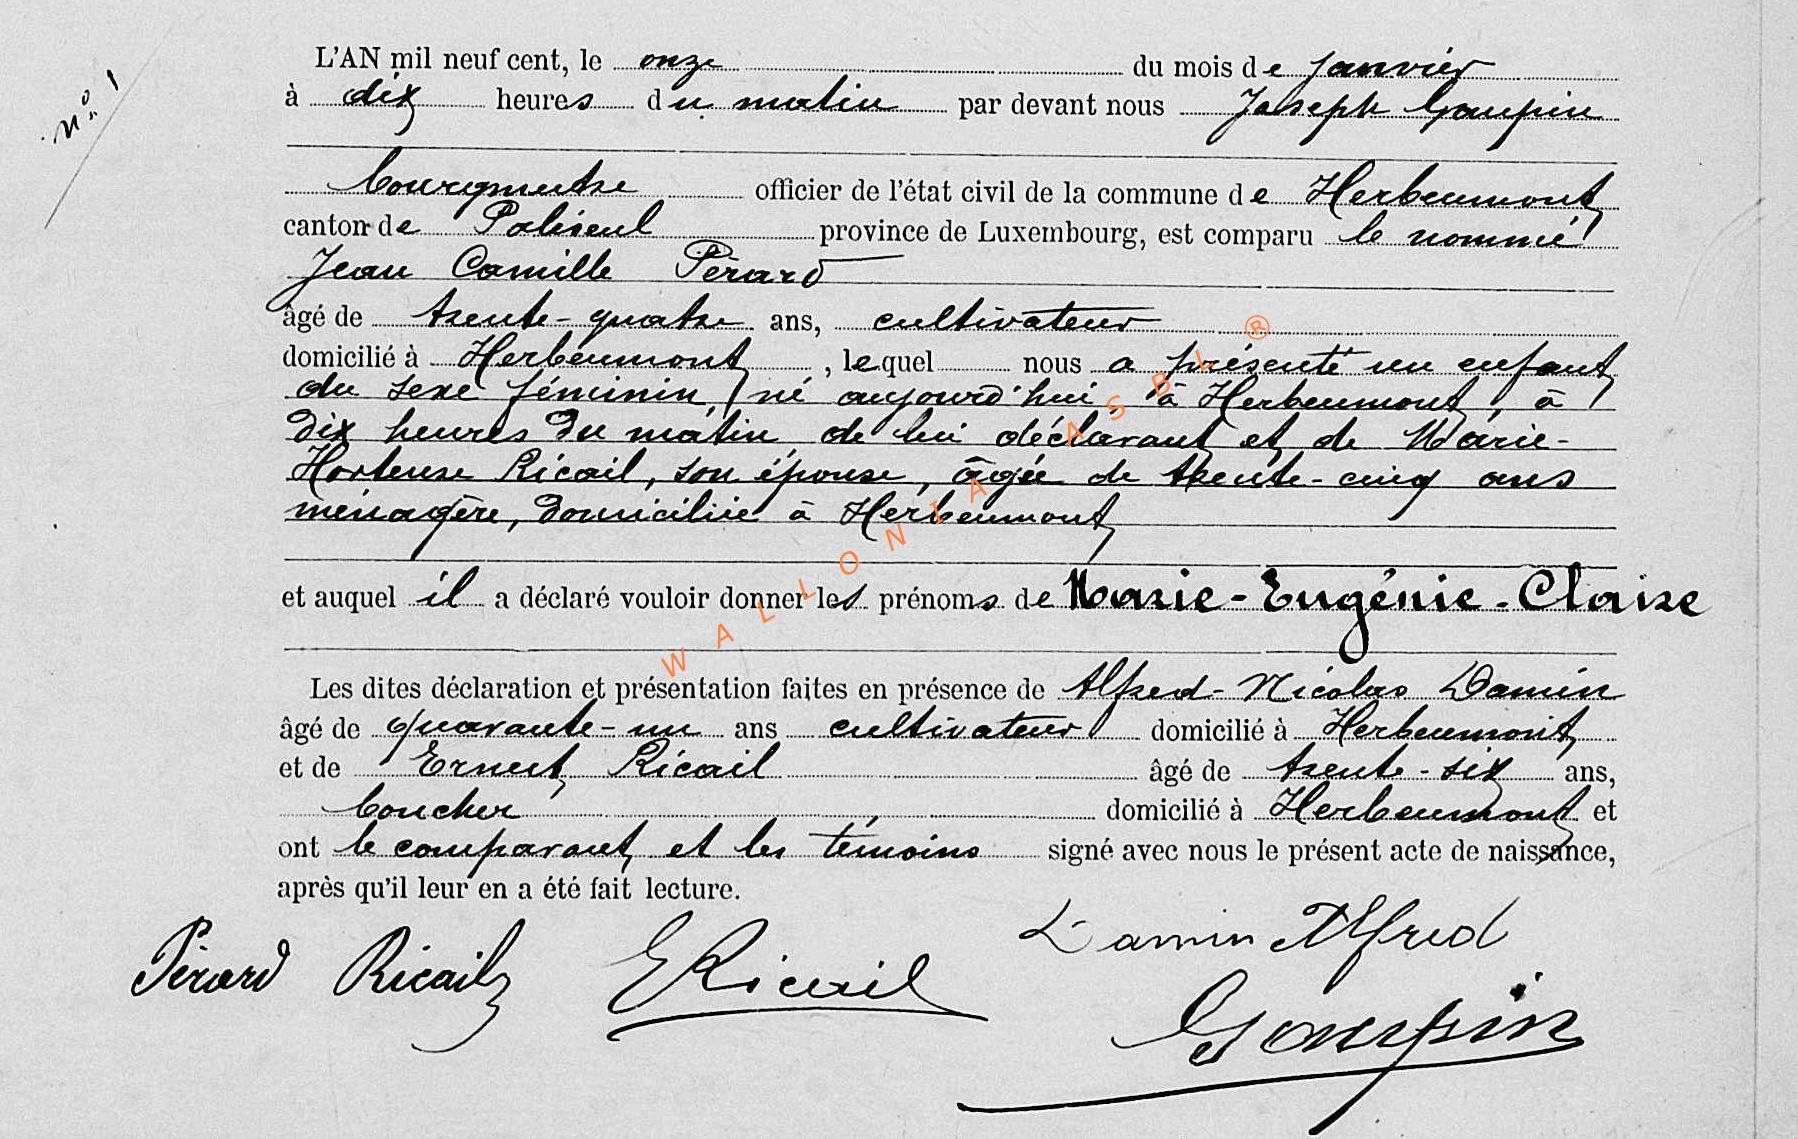 N° 1
L'AN mil neuf cent, le onze du mois de janvier
à dix heures du matin par devant nous Joseph Goupin
bourgmestre officier de l'état civil de la commune de Herbeumont
canton de Paliseul province de Luxembourg, est comparu le nommé
Jean Camille Pérard
âgé de trente-quatre ans, cultivateur
domicilié à Herbeumont, lequel nous a présenté un enfant
du sexe féminin, né aujourd'hui, à Herbeumont, à
dix heures du matin de lui déclarant et de Marie-
Hortense Ricail, son épouse, âgée de trente-cinq ans
ménagère, domiciliée à Herbeumont
et auquel il a déclaré vouloir donner les prénoms de Marie-Eugénie-Claire
Les dites déclaration et présentation faites en présence de Alfred-Nicolas Damin
âgé de quarante-un ans cultivateur domicilié à Herbeumont
et de Ernest Ricail âgé de trente-six ans,
boucher domicilié à Herbeumont et
ont le comparant et les témoins signé avec nous le présent acte de naissance,
après qu'il leur en a été fait lecture.
Damin Alfred
Pérard Ricail E Ricail
Goupin
WALLONIA ASBL ®